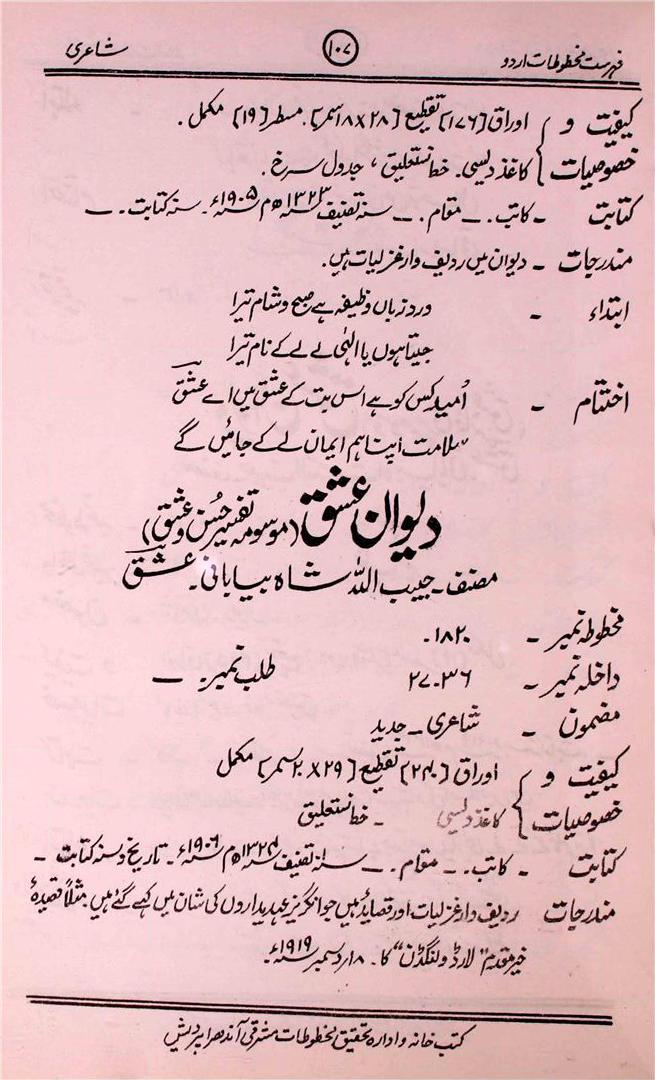 فہرست مخطوطات اردو ۱۰۷ شاعری
کیفیت و خصوصیات { اوراق [۱۷۶] تقطیع [۲۸×۱۸ سمر]. مسطر [۱۹] مکمل.
کاغذ دیسی. خط نستعلیق، جدول سرخ.
کتابت ـ کاتب. ـ مقام. ـ سنہ تصنیف ۱۳۲۳ھ م ۱۹۰۵ء. سنہ کتابت. ـ
مندرجات ـ دیوان میں ردیف وار غزلیات ہیں.
ابتداء ـ ورد زباں وظیفہ ہے صبح و شام تیرا
جیتا ہوں یا الٰہی لے لے کے نام تیرا
اختتام ـ اُمید کس کو ہے اس بت کے عشق میں اے عشق
سلامت اپنا ہم ایمان لے کے جائیں گے
دیوان عشق (موسومہ تفسیر حُسن و عشق)
مصنف ـ حبیب اللہ شاہ بیابانی. عشق
مخطوطہ نمبر ـ ۱۸۲۰.
داخلہ نمبر ـ ۲۷۰۳۶ طلب نمبر. ـ
مضمون ـ شاعری ـ جدید
کیفیت و خصوصیات { اوراق [۲۴۰] تقطیع [۲۹×۲۰ سمر] مکمل
کاغذ دیسی ـ خط نستعلیق
کتابت ـ کاتب. ـ مقام. ـ سنہ تصنیف ۱۳۲۴ھ م ۱۹۰۶ء. تاریخ و سنہ کتابت ـ
مندرجات ردیف وار غزلیات اور قصاید ہیں جو انگریز عہدیداروں کی شان میں کہے گئے ہیں. مثلاً قصیدۂ
خیر مقدم "لارڈ ولنگڈن" کا. ۱۸ر دسمبر ۱۹۱۹ء.
کتب خانہ و ادارہ تحقیق مخطوطات مشرقی آندھرا پردیش